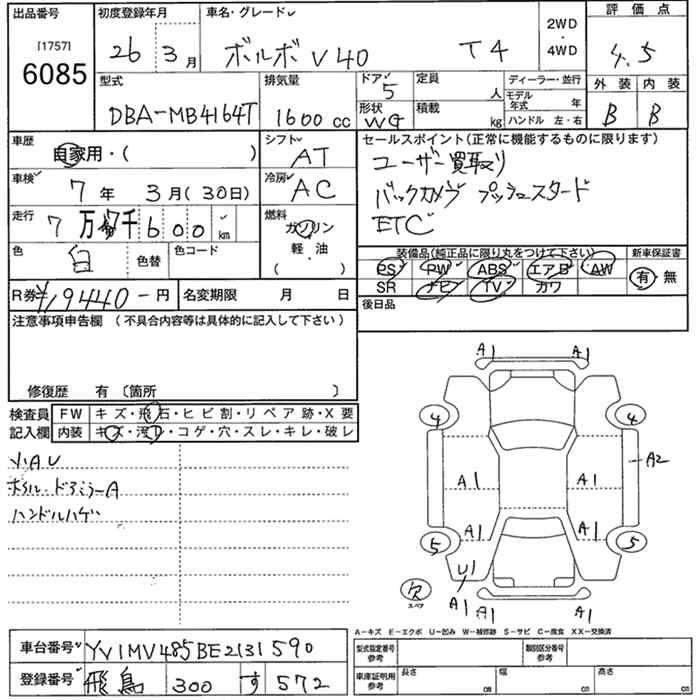 出品番号
[1757]
6085
初度登録年月
26 3月
車名・グレード
ボルボ V40 T4
2WD
・
4WD
評価点
4.5
型式
DBA-MB4164T
排気量
1600 cc
ドア
5
形状
WG
定員
人
積載
kg
ディーラー・並行
モデル年式 年
ハンドル 左・右
外装 内装
B B
車歴
自家用・( )
シフト
AT
車検
7年 3月(30日)
冷房
AC
走行
7万 7千 600 km
燃料
ガソリン
軽・油
( )
色
白
色替
色コード
セールスポイント(正常に機能するものに限ります)
ユーザー買取り
バックカメラ プッシュスタート
ETC
装備品(純正品に限り丸をつけて下さい)
PS PW ABS エアB AW
SR ナビ TV カワ
新車保証書
有・無
R券 ¥19440-円
名変期限 月 日
後日品
注意事項申告欄 (不具合内容等は具体的に記入して下さい)
修復歴 有 〔箇所 〕
検査員記入欄
FW キズ・飛石・ヒビ割・リペア跡・X要
内装 キズ・汚レ・コゲ・穴・スレ・キレ・破レ
小AU
ホイル・ドアミラーA
ハンドルハゲ
A1 A1
4 4
A2
A1 A1
A1 A1
5 5
U1
A1 A1 A1
欠
スペア
A-キズ E-エクボ U-凹み W-補修跡 S-サビ C-腐食 XX-交換済
車台番号
YV1MV485BE2131590
登録番号
飛鳥 300 す 572
型式指定番号
参考
類別区分番号
参考
車庫証明用
参考
長さ cm
幅 cm
高さ cm